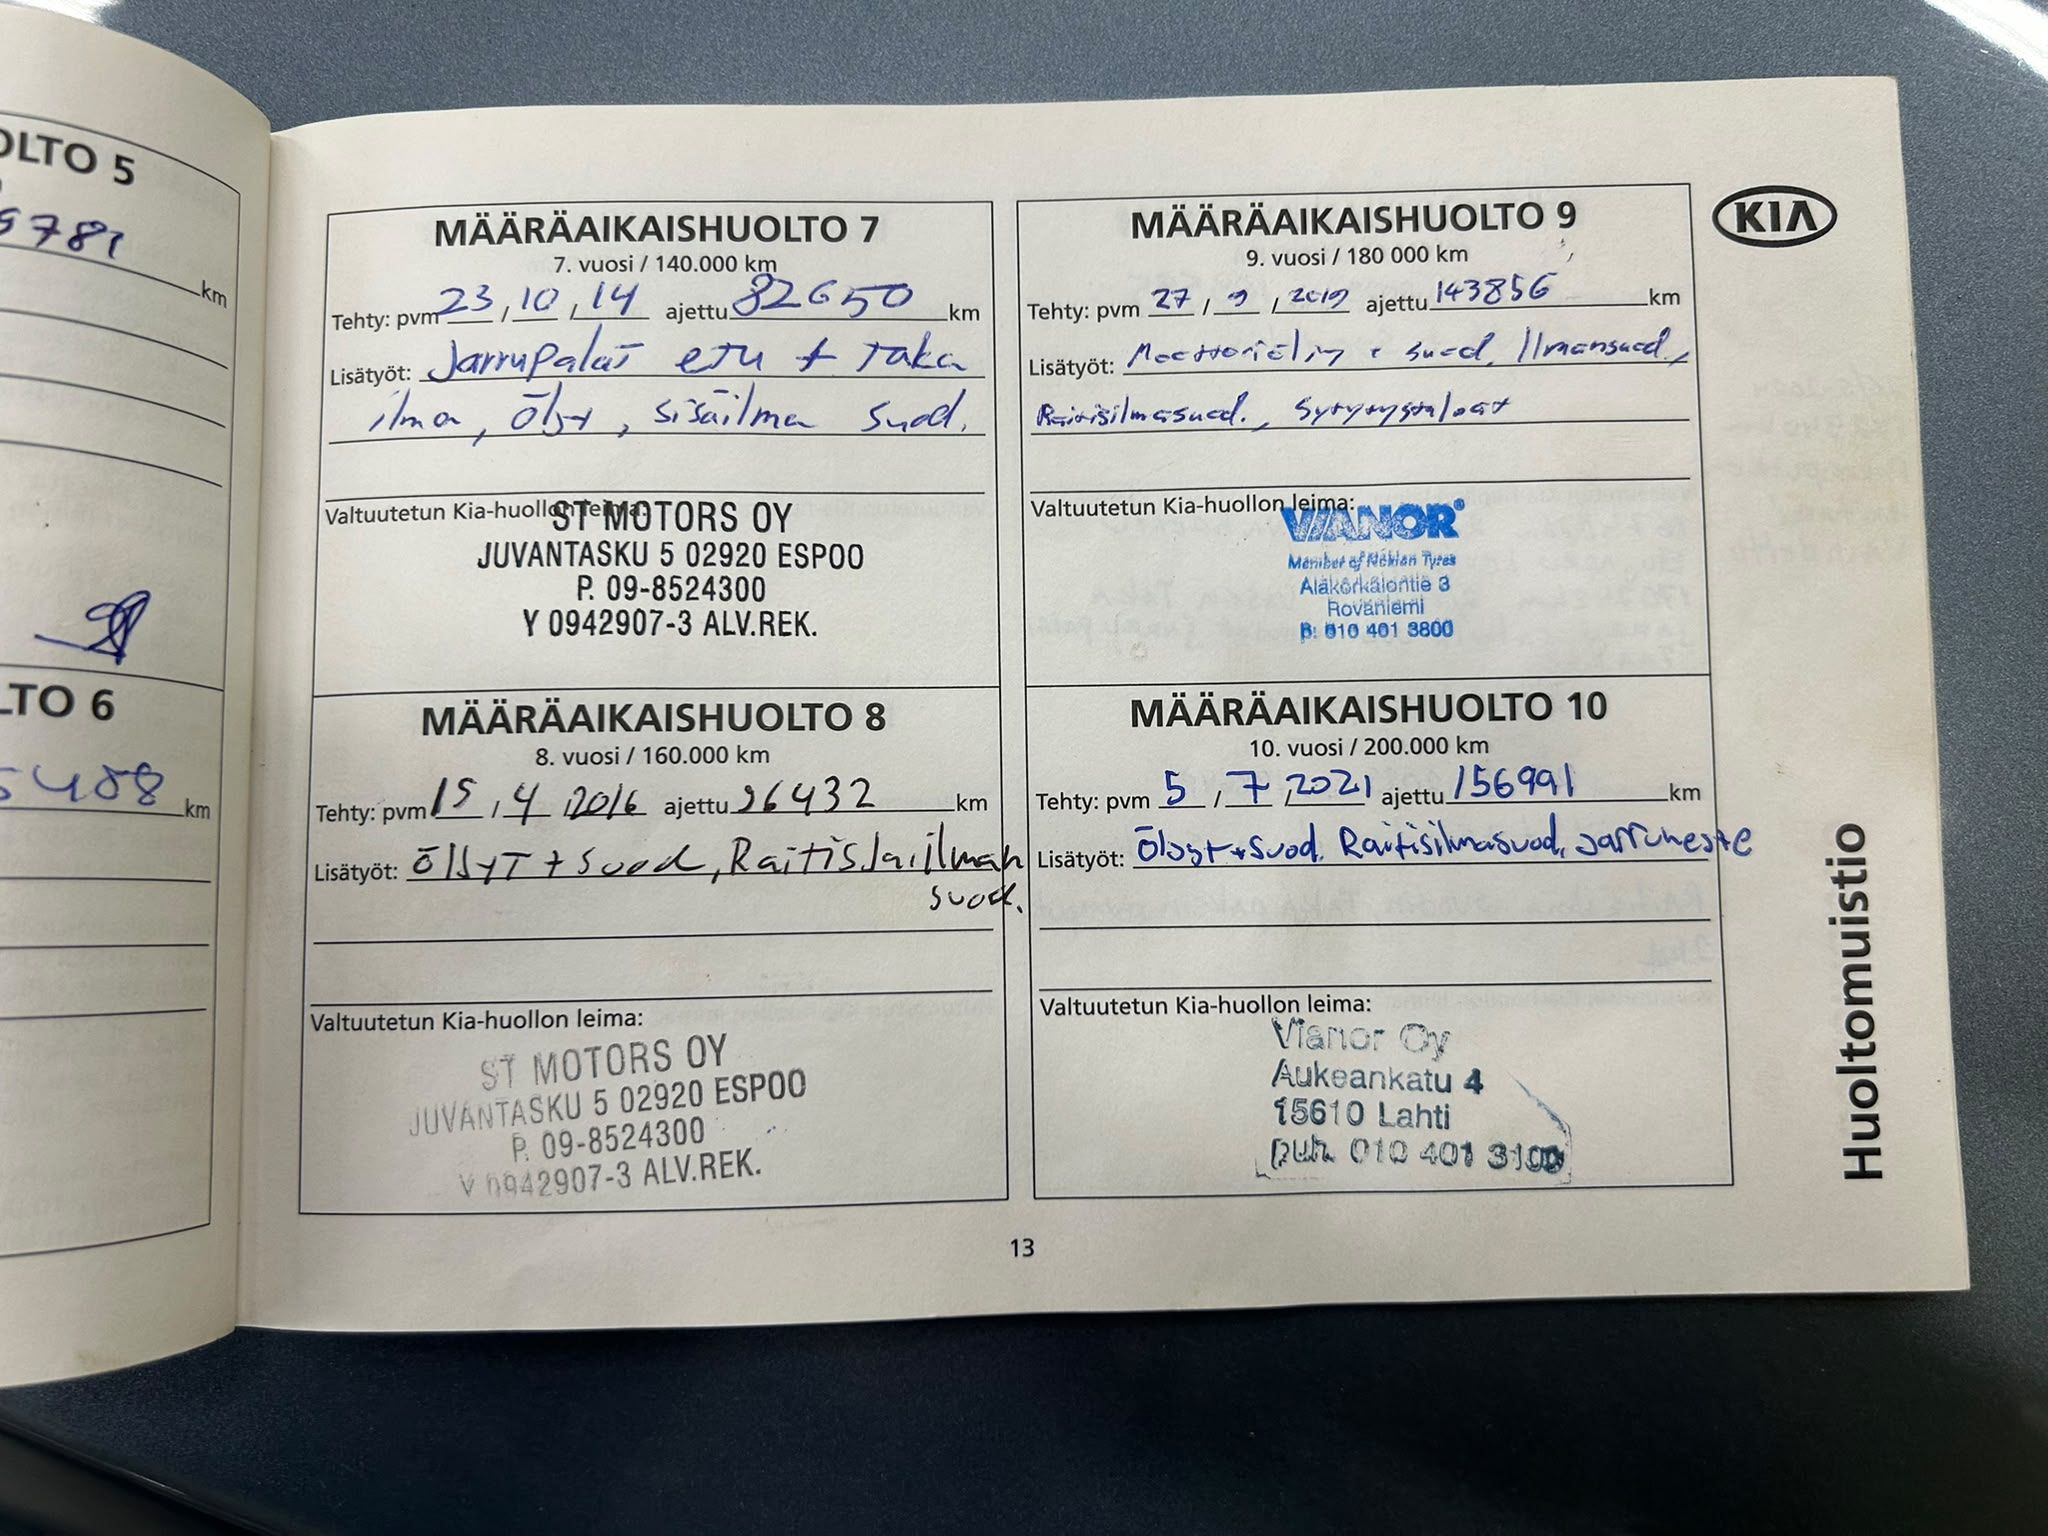 OLTO 5
9781 km
LTO 6
5408 km
MÄÄRÄAIKAISHUOLTO 7
7. vuosi / 140.000 km
Tehty: pvm 23 / 10 / 14 ajettu 82650 km
Lisätyöt: Jarrupalat etu + taka
ilma, öljy, sisäilma suod.
Valtuutetun Kia-huollon leima:
ST MOTORS OY
JUVANTASKU 5 02920 ESPOO
P. 09-8524300
Y 0942907-3 ALV.REK.
MÄÄRÄAIKAISHUOLTO 8
8. vuosi / 160.000 km
Tehty: pvm 15 / 4 / 2016 ajettu 96432 km
Lisätyöt: öljyt + suod, Raitis ja ilman
suod.
Valtuutetun Kia-huollon leima:
ST MOTORS OY
JUVANTASKU 5 02920 ESPOO
P. 09-8524300
Y 0942907-3 ALV.REK.
MÄÄRÄAIKAISHUOLTO 9
9. vuosi / 180 000 km
Tehty: pvm 27 / 9 / 2019 ajettu 143856 km
Lisätyöt: Moottoriöljy + suod, Ilmansuod.,
Raitisilmasuod., Sytytystulpat
Valtuutetun Kia-huollon leima:
VIANOR
Member of Nokian Tyres
Alakorkalontie 3
Rovaniemi
p. 010 401 3800
MÄÄRÄAIKAISHUOLTO 10
10. vuosi / 200.000 km
Tehty: pvm 5 / 7 / 2021 ajettu 156991 km
Lisätyöt: Öljyt + suod. Raitisilmasuod, jarruneste
Valtuutetun Kia-huollon leima:
Vianor Oy
Aukeankatu 4
15610 Lahti
puh. 010 401 3100
KIA
Huoltomuistio
13